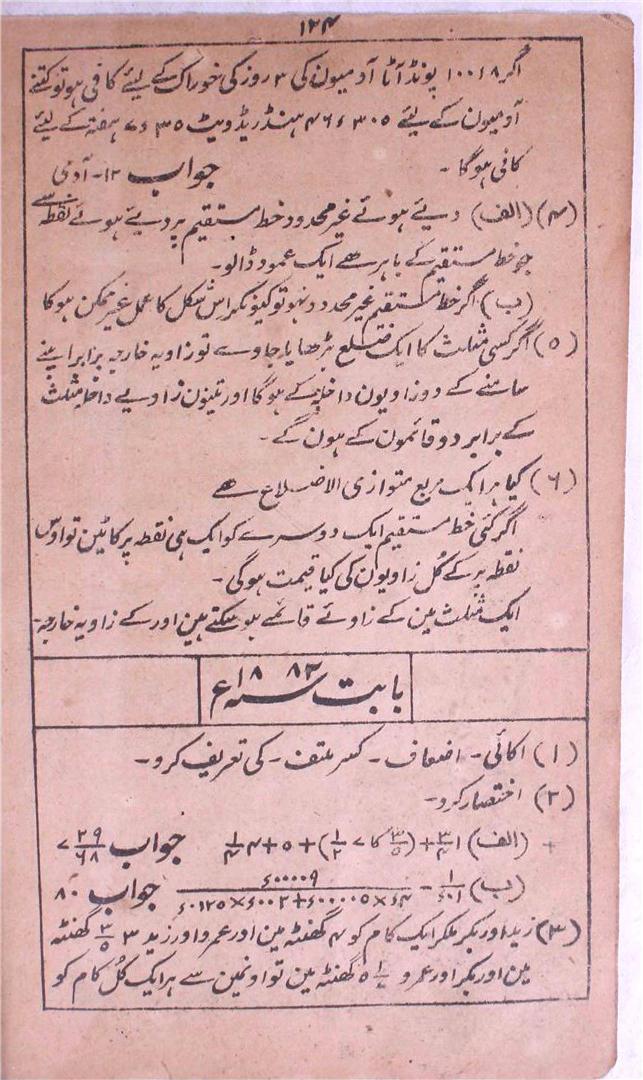 ۱۲۴
اگر ۱۰۰۱۸ پونڈ آٹا آدمیون کی ۳ روز کی خوراک کے لیئے کافی ہو تو کتنے
آدمیون کے لیئے ۳۰۵ء۴۶ ہنڈریڈ ویٹ ۳۵ء۷ ہفتہ کے لیئے
کافی ہوگا ۔
جواب ۱۲ - آدمی
(۴) (الف) دیئے ہوئے غیر محدود خط مستقیم پر دیئے ہوئے نقطہ سے
جو خط مستقیم کے باہر ھے ایک عمود ڈالو۔
(ب) اگر خط مستقیم غیر محدود نہو تو کیونکر اس شکل کا عمل غیر ممکن ہوگا
(۵) اگر کسی مثلث کا ایک ضلع بڑھایا جاوے تو زاویہ خارجہ برابر اپنے
سامنے کے دو زاویون داخلہ کے ہوگا اور تینون زاویے داخلہ مثلث
کے برابر دو قائمون کے ہون گے ۔
(۶) کیا ہر ایک مربع متوازی الاضلاع ھے
اگر کئی خط مستقیم ایک دوسرے کو ایک ہی نقطہ پر کاٹین تو اوس
نقطہ پر کے کُل زاویون کی کیا قیمت ہوگی ۔
ایک مثلث مین کے زاوئے قائمے ہو سکتے ہین اور کے زاویہ خارجہ ۔
بابت سنہ ۱۸۸۲ء
(۱) اکائی ۔ اضعاف ۔ کسر ملتف ۔ کی تعریف کرو ۔
(۲) اختصار کرو ۔
(الف) ۱ ۳/۴ + (۳/۵ کا ۷ ۱/۲) + ۵ + ۴ ۱/۴ جواب ۷ ۲۹/۶۸
(ب) ۱/۶۰۱ - ء۰۰۰۰۹ / ء۰۱۲۵×ء۰۰۲+ء۰۰۰۰۰۵×ء۴ جواب ۸۰
(۳) زید اور بکر ملکر ایک کام کو ۴ گھنٹہ مین اور عمرو اور زید ۳ ۳/۵ گھنٹہ
مین اور بکر اور عمرو ۵ ۱/۷ گھنٹہ مین تو اونمین سے ہر ایک کُل کام کو